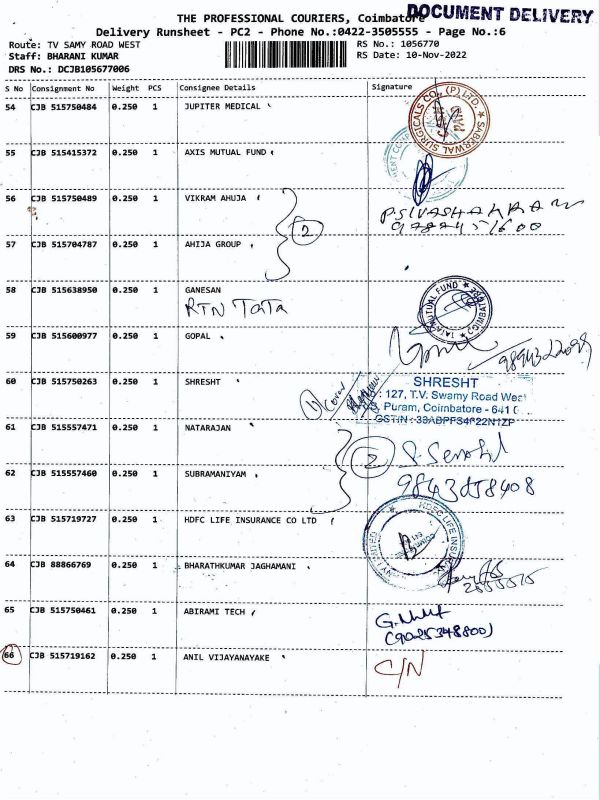 THE PROFESSIONAL COURIERS, Coimbatore
DOCUMENT DELIVERY
Delivery Runsheet - PC2 - Phone No.:0422-3505555 - Page No.:6
Route: TV SAMY ROAD WEST
RS No.: 1056770
Staff: BHARANI KUMAR
RS Date: 10-Nov-2022
DRS No.: DCJB105677006
S No Consignment No Weight PCS Consignee Details Signature
54 CJB 515750484 0.250 1 JUPITER MEDICAL
SABERWAL SURGICALS CO., (P) LTD.
55 CJB 515415372 0.250 1 AXIS MUTUAL FUND
56 CJB 515750489 0.250 1 VIKRAM AHUJA
2
57 CJB 515704787 0.250 1 AHIJA GROUP
58 CJB 515638950 0.250 1 GANESAN
RTN TATA
TATA MUTUAL FUND
59 CJB 515600977 0.250 1 GOPAL
60 CJB 515750263 0.250 1 SHRESHT
SHRESHT
127, T.V. Swamy Road West
Puram, Coimbatore - 641
61 CJB 515557471 0.250 1 NATARAJAN
2
62 CJB 515557460 0.250 1 SUBRAMANIYAM
63 CJB 515719727 0.250 1 HDFC LIFE INSURANCE CO LTD
HDFC LIFE INSU
64 CJB 88866769 0.250 1 BHARATHKUMAR JAGHAMANI
65 CJB 515750461 0.250 1 ABIRAMI TECH
(9025348800)
66 CJB 515719162 0.250 1 ANIL VIJAYANAYAKE
C/N